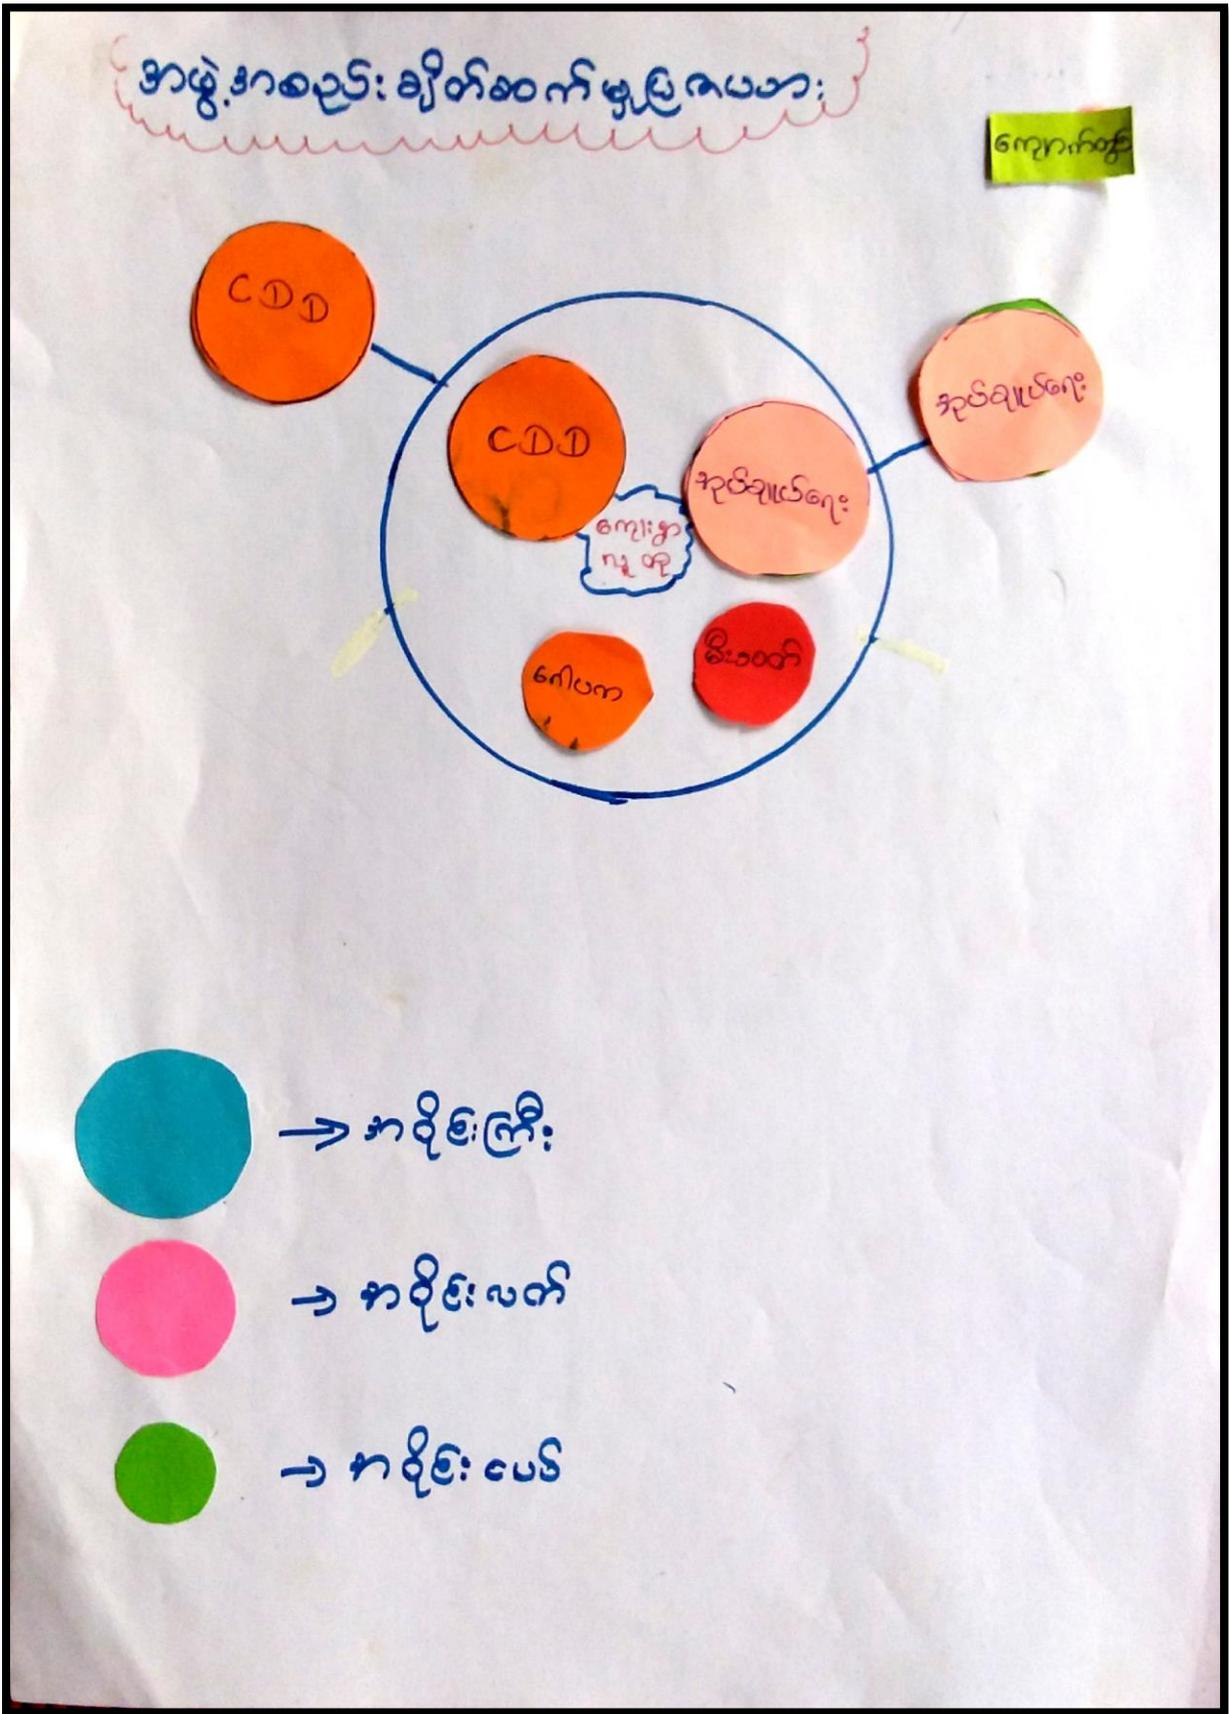 အဖွဲ့အစည်းချိတ်ဆက်မှုပြဇယား
ကျောက်တွင်း
CDD
CDD
အုပ်ချုပ်ရေး
အုပ်ချုပ်ရေး
ကျေးရွာ
လူထု
ဂေါပက
မီးသတ်
အဝိုင်းကြီး
အဝိုင်းလတ်
အဝိုင်းသေး